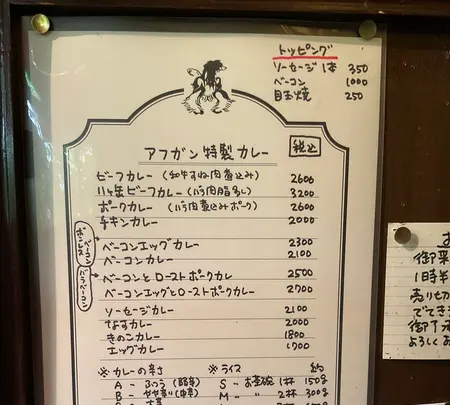 トッピング
ソーセージ 1本 350
ベーコン 1000
目玉焼 250
アフガン 特製 カレー 税込
ビーフカレー (和牛すね肉煮込み) 2600
ビーフカレー 3200
ポークカレー (バラ肉煮込みポーク) 2600
チキンカレー 2000
ベーコンエッグカレー 2300
ベーコンカレー 2100
ベーコンとローストポークカレー 2500
ベーコンエッグとローストポークカレー 2700
ソーセージカレー 2100
なすカレー 2000
きのこカレー 1800
エッグカレー 1700
※ カレーの辛さ ※ ライス
A - ふつう S - お茶碗 1杯 150g
B - M - 〃 2杯 300g
御来
1時半
売り切
でてき
御了承
よろしくお